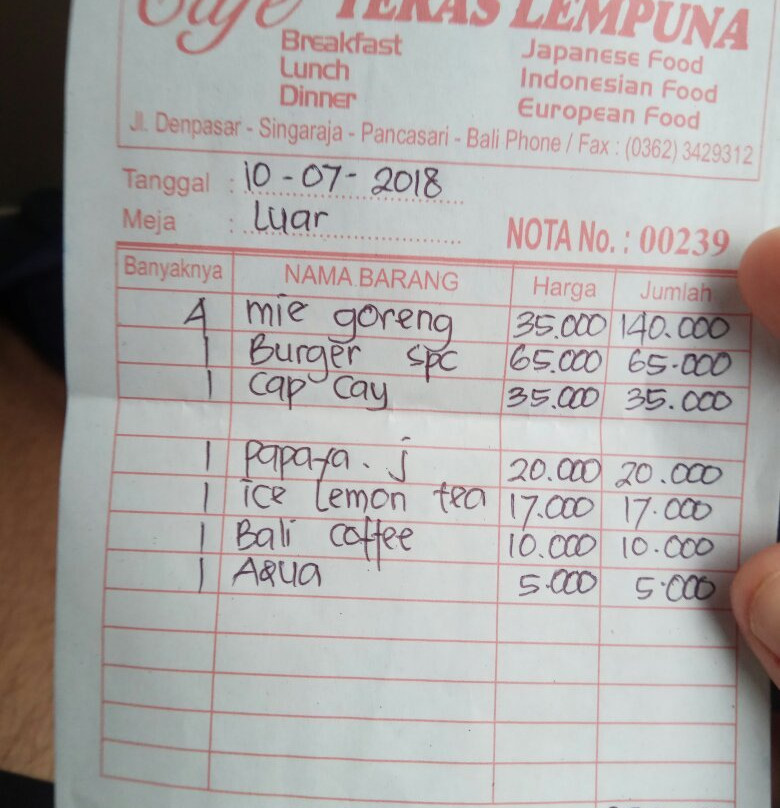 Cafe TERAS LEMPUNA
Breakfast
Lunch
Dinner
Japanese Food
Indonesian Food
European Food
Jl. Denpasar - Singaraja - Pancasari - Bali Phone / Fax : (0362) 3429312
Tanggal : 10-07-2018
Meja : Luar
NOTA No. : 00239
Banyaknya NAMA BARANG Harga Jumlah
4 mie goreng 35.000 140.000
1 Burger spc 65.000 65.000
1 Cap Cay 35.000 35.000
1 papaya. j 20.000 20.000
1 ice Lemon tea 17.000 17.000
1 Bali coffee 10.000 10.000
1 AQUA 5.000 5.000